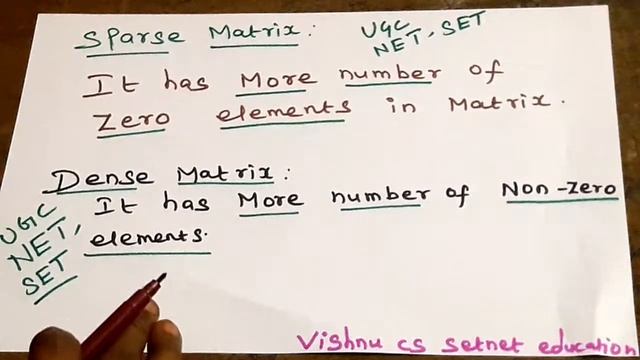 Sparse Matrix:
UGC
NET, SET
It has More number of
Zero elements in Matrix.
Dense Matrix:
It has More number of Non-Zero
elements.
UGC
NET,
SET
Vishnu cs setnet education